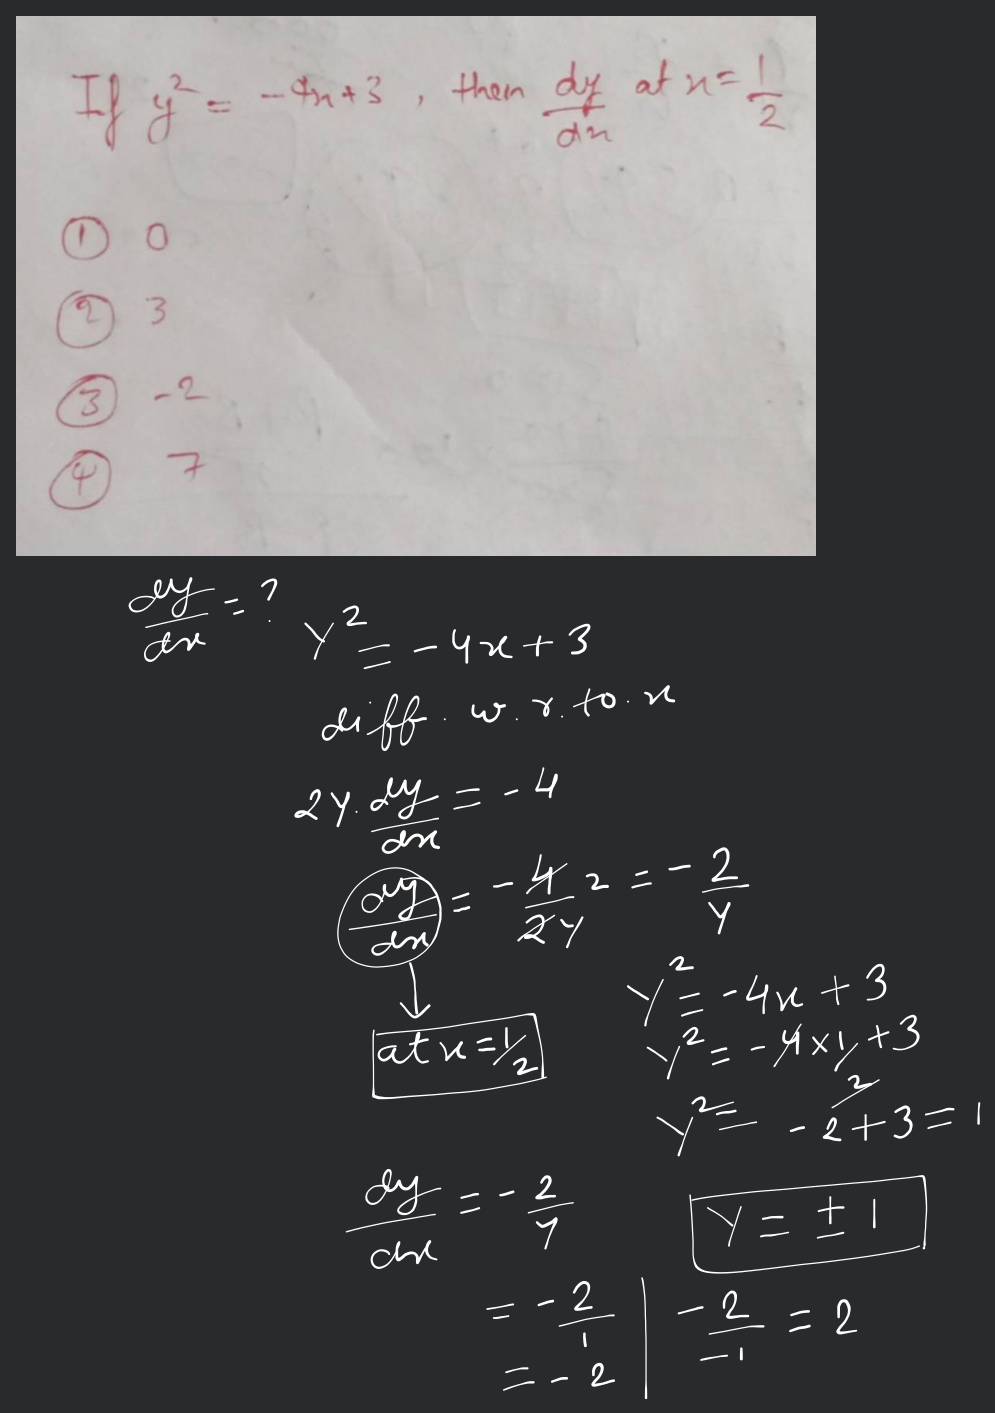 If y² = -4x+3 , then dy/dx at x = 1/2
① 0
② 3
③ -2
④ 7
dy/dx = ?
Y² = -4x + 3
diff. w.r.to.x
2Y. dy/dx = -4
dy/dx = -4/2Y 2 = -2/Y
at x = 1/2
Y² = -4x + 3
Y² = -4×1/2 + 3
Y² = -2+3 = 1
Y = ± 1
dy/dx = -2/Y
= -2/1
= -2
-2/-1 = 2